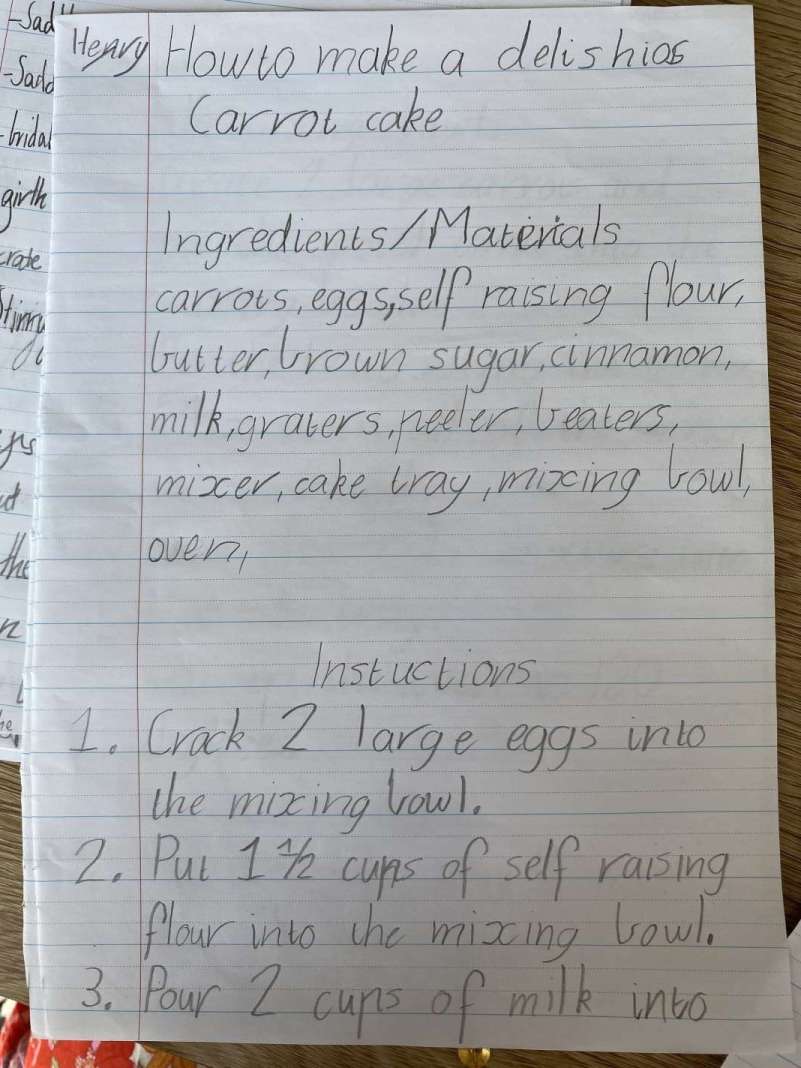 -Sadd
-Sadd
-bridal
girth
crate
the
Henry How to make a delishios
Carrot cake
Ingredients/Materials
carrots, eggs, self raising flour,
butter, brown sugar, cinnamon,
milk, graters, peeler, beaters,
mixer, cake tray, mixing bowl,
oven,
Instuctions
1. Crack 2 large eggs into
the mixing bowl.
2. Put 1 1/2 cups of self raising
flour into the mixing bowl.
3. Pour 2 cups of milk into